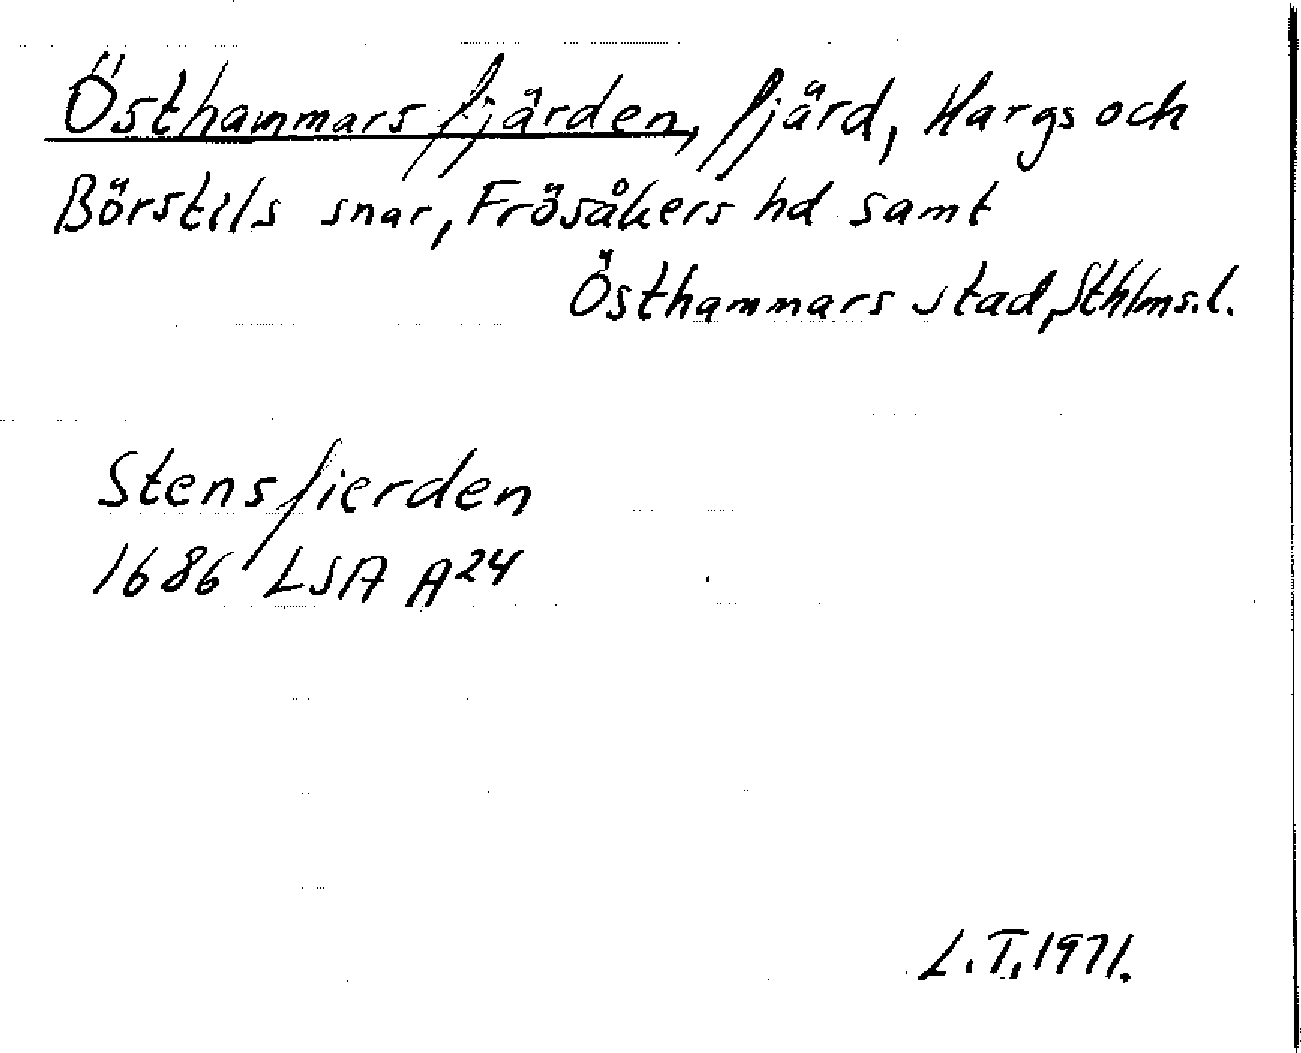 Östhammarsfjärden, fjärd, Hargs och
Börstils snar, Frösåkers hd samt
Östhammars stad, Sthlms.l.
Stensfierden
1686 LSA A24
L.T. 1971.